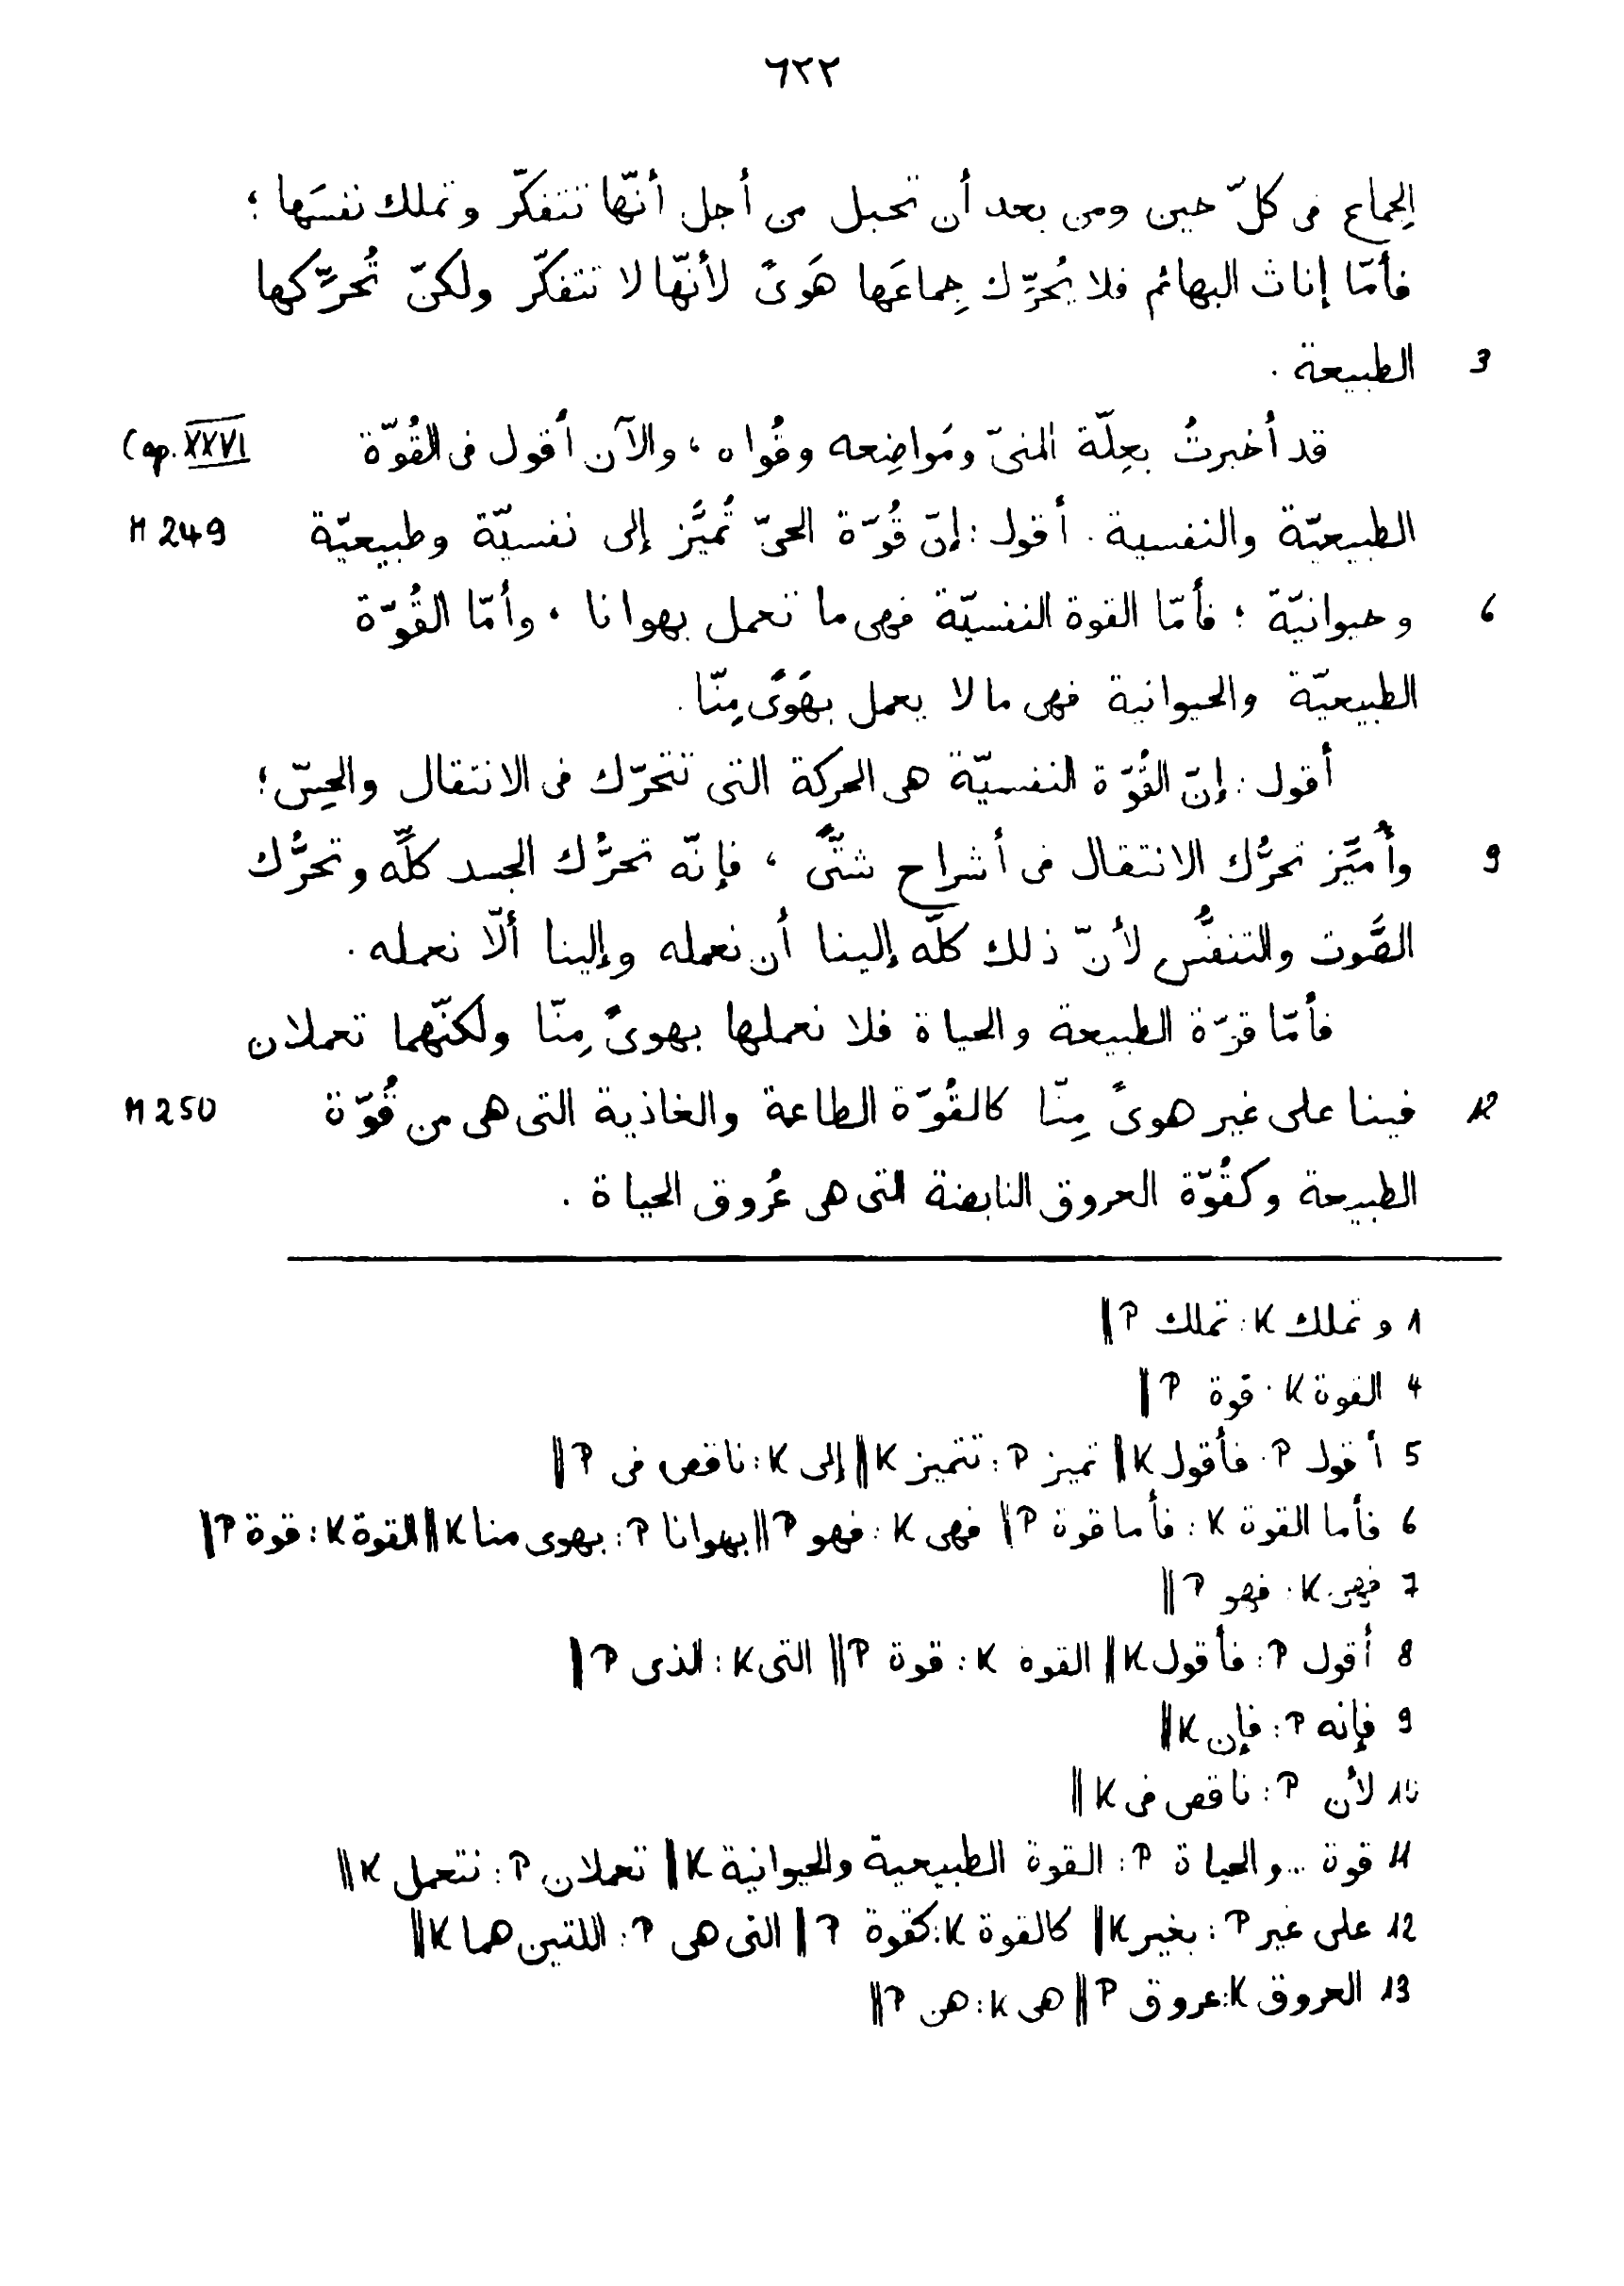 ٦٢٢
الجِماع فى كلّ حين ومن بعد أن تحبل من أجل أنّها تتفكّر وتملك نفسَها ؛
فأمّا إناث البهائم فلا يُحرِّك جِماعَها هَوىً لأنّها لا تتفكّر ولكنّ تُحرِّكها
3 الطبيعة .
Cap. XXVI قد أخبرتُ بعِلّة المنىّ ومَواضِعه وقُواه ، والآن أقول فى القُوّة
M 249 الطبيعيّة والنفسية . أقول : إنّ قُوّة الحىّ تُميَّز إلى نفسيّة وطبيعيّة
6 وحيوانيّة ؛ فأمّا القوة النفسيّة فهى ما تعمل بهوانا ، وأمّا القُوّة
الطبيعيّة والحيوانية فهى ما لا يعمل بهَوًى مِنّا .
أقول : إنّ القُوّة النفسيّة هى الحركة التى تتحرّك فى الانتقال والحِسّ ؛
9 وأُميِّز تحرُّك الانتقال فى أشراح شتًّى ، فإنّه تحرُّك الجسد كلِّه وتحرُّك
الصَّوت والتنفُّس لأنّ ذلك كلّه إلينا أن نعمله وإلينا ألّا نعمله .
فأمّا قوّة الطبيعة والحياة فلا نعملها بهوىً مِنّا ولكنّهما تعملان
M 250 12 فينا على غير هوىً مِنّا كالقُوّة الطاعمة والغاذية التى هى من قُوّة
الطبيعة وكقُوّة العروق النابضة التى هى عُروق الحياة .
1 وتملك K : تملك P ||
4 القوة K : قوة P ||
5 أقول P : فأقول K || تميز P : تتميز K || إلى K : ناقص فى P ||
6 فأما القوة K : فأما قوة P || فهى K : فهو P || بهوانا P : بهوى منا K || القوة K : قوة P ||
7 فهى K : فهو P ||
8 أقول P : فأقول K || القوة K : قوة P || التى K : الذى P ||
9 فإنه P : فإن K ||
10 لأن P : ناقص فى K ||
11 قوة ... والحياة P : القوة الطبيعية والحيوانية K || تعملان P : تتعمل K ||
12 على غير P : بغير K || كالقوة K : كقوة P || التى هى P : اللتين هما K ||
13 العروق K : عروق P || هى K : هن P ||